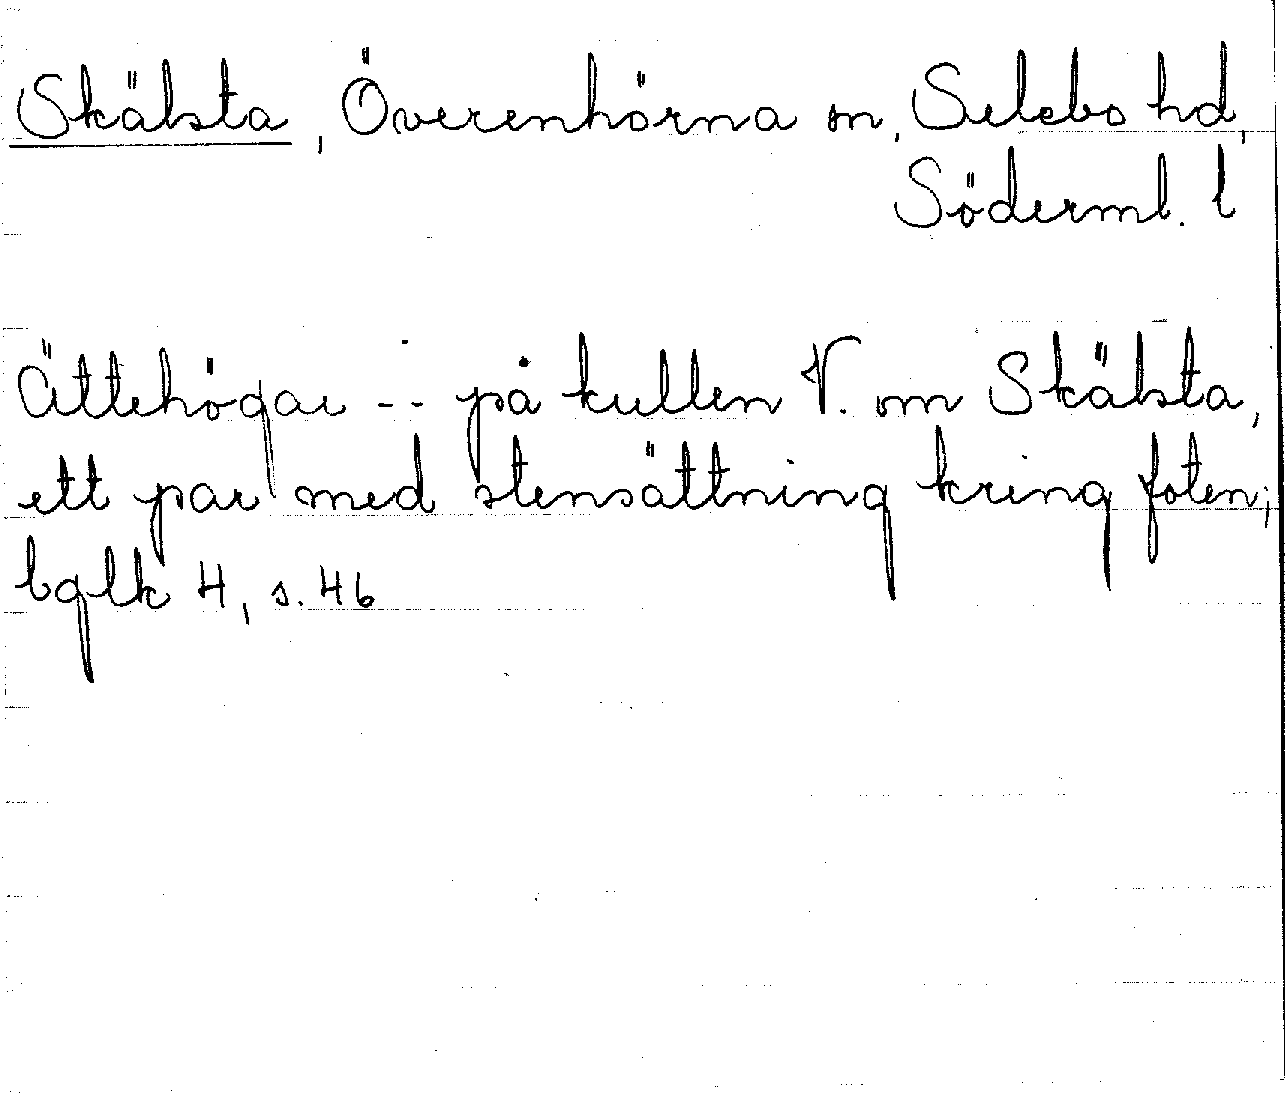 Skälsta, Överenhörna sn, Selebo hd,
Söderml. l
Ättehögar -- på kullen V. om Skälsta,
ett par med stensättning kring foten;
bglk 4, s. 46